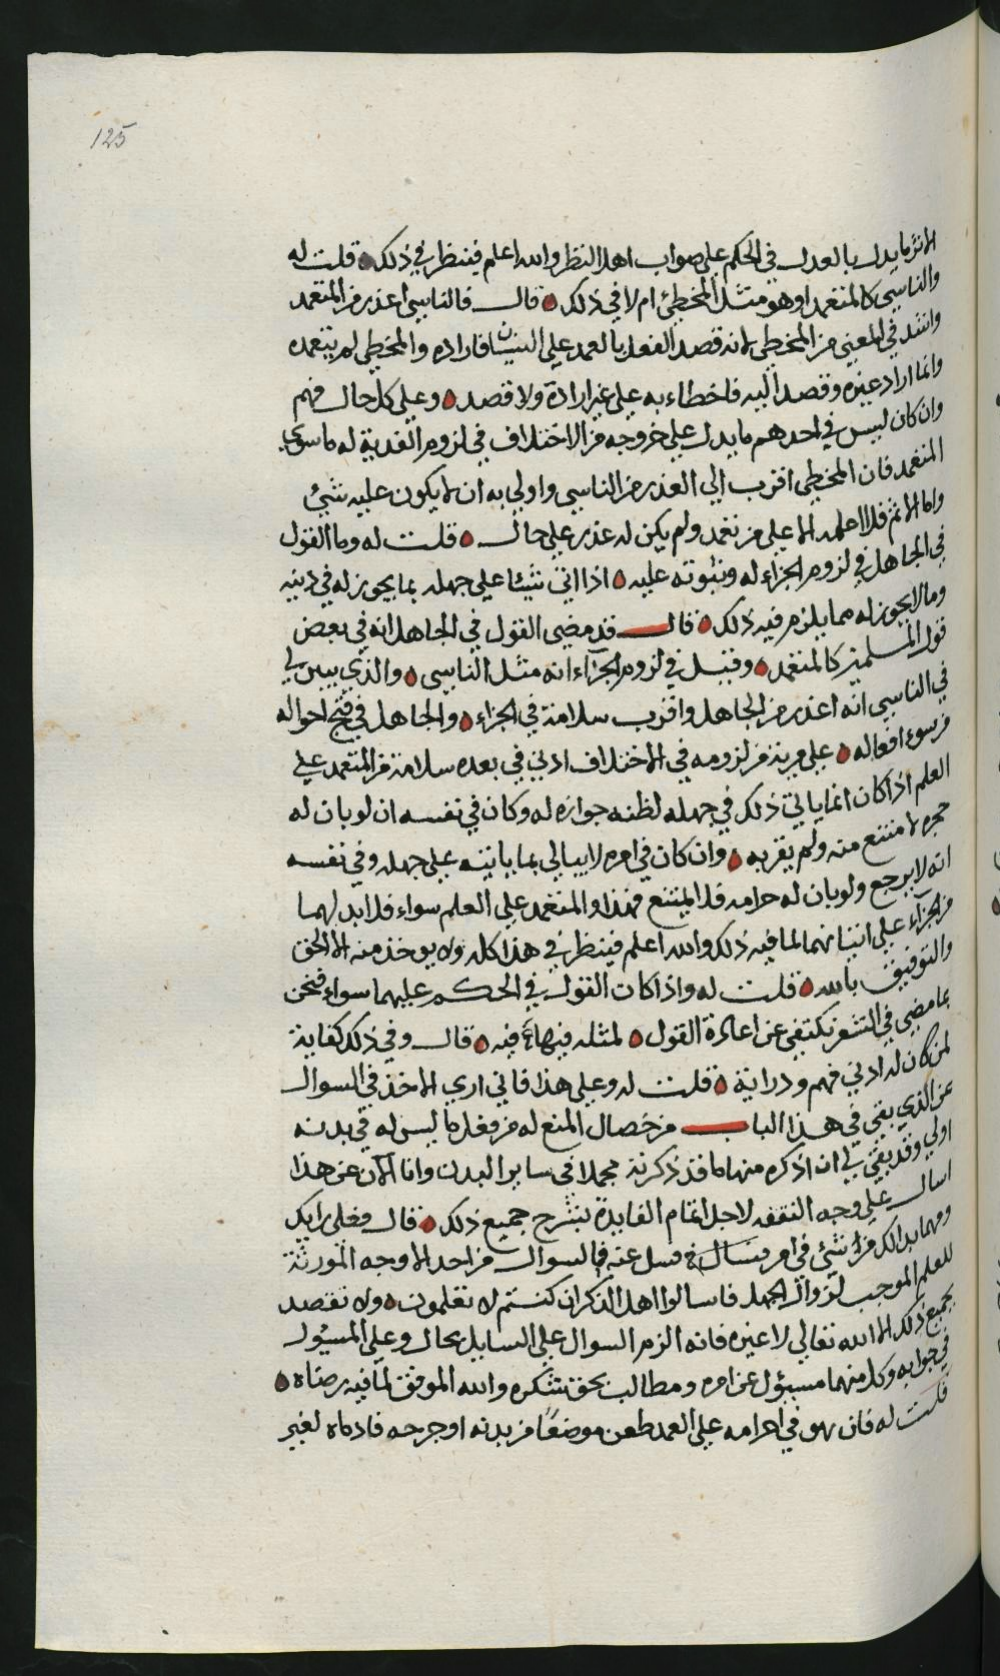 125
الاثر ما يدل بالعدل في الحكم على صواب اهل النظر والله اعلم فينظر في ذلك قلت له
والناسي كالمتعمد او هو مثل المخطئ ام لا في ذلك قال فالناسي اعذر من المتعمد
واشد في المعني من المخطي لانه قصد الفعل بالعمد علي النسيان فاراده والمخطي لم يتعمده
وانما اراد غيره وقصد اليه فاخطاء به علي غير ارادة ولا قصد وعلي كل حال فهم
وان كان ليس في احدهم ما يدل علي خروجه من الاختلاف في لزوم الفدية له ما سوي
المتعمد فان المخطي اقرب الي العذر من الناسي واولي به ان لا يكون عليه شيئ
واما الاثم فلا اعلمه الا علي من تعمد ولم يكن له عذر علي حال قلت له وما القول
في الجاهل في لزوم الجزاء له وثبوته عليه اذا اتي شيئا علي جهله بما يجوز له في دينه
وما لا يجوز له مما يلزم فيه ذلك قال قد مضي القول في الجاهل انه في بعض
قول المسلمين كالمتعمد وقيل في لزوم الجزآء انه مثل الناسي والذي يبين لي
في الناسي انه اعذر من الجاهل واقرب سلامة في الجزاء والجاهل في قبح احواله
من سوء افعاله علي مرية من لزومه في الاختلاف ادني في بعده سلامة من المتعمد علي
العلم اذا كان انما ياتي ذلك في جهله لظنه جوازه له وكان في نفسه ان لو بان له
حجره لامتنع منه ولم يقربه وان كان في امره لا يبالي بما ياتيه علي جهله وفي نفسه
انه لا يرجع ولو بان له حرامه فلا يمتنع فهذا والمتعمد علي العلم سواء فلا بد لهما
من الجزآء علي اتيانهما لما فيه ذلك والله اعلم فينظر في هذا كله ولا يوخذ منه الا الحق
والتوفيق بالله قلت له واذا كان القول في الحكم عليهما سواء فنحن
بما مضي في الشعر نكتفي عن اعادة القول لمثله فيهما فيه قال وفي ذلك كفاية
لمن كان له ادني فهم ودراية قلت له وعلي هذا فاني اري الاخذ في السوال
عن الذي بقي في هذا الباب من خصال المنع له من فعل ما ليس له في بدنه
اولي وقد بقي لي ان اذكره منها ما قد ذكرته مجملا في ساير البدن وانا الآن عن هذا
اسال علي وجه التفقه لاجل اتمام الفايدة بشرح جميع ذلك قال فعلي رايك
ومهما بدا لك من شيئ في امر فسل عنه فالسوال من احد الاوجه المورثة
للعلم الموجب لزوال الجهل فاسالوا اهل الذكر ان كنتم لا تعلمون ولا تقصد
بجميع ذلك الا الله تعالي لا غيره فانه الزم السوال علي السايل بحال وعلي المسيول
في جوابه وكل منهما مسيول عن امره ومطالب بحق شكره والله الموفق لما فيه رضاه
قلت له فان هو في احرامه علي العمد طعن موضعًا من بدنه او جرحه فادماه لغير